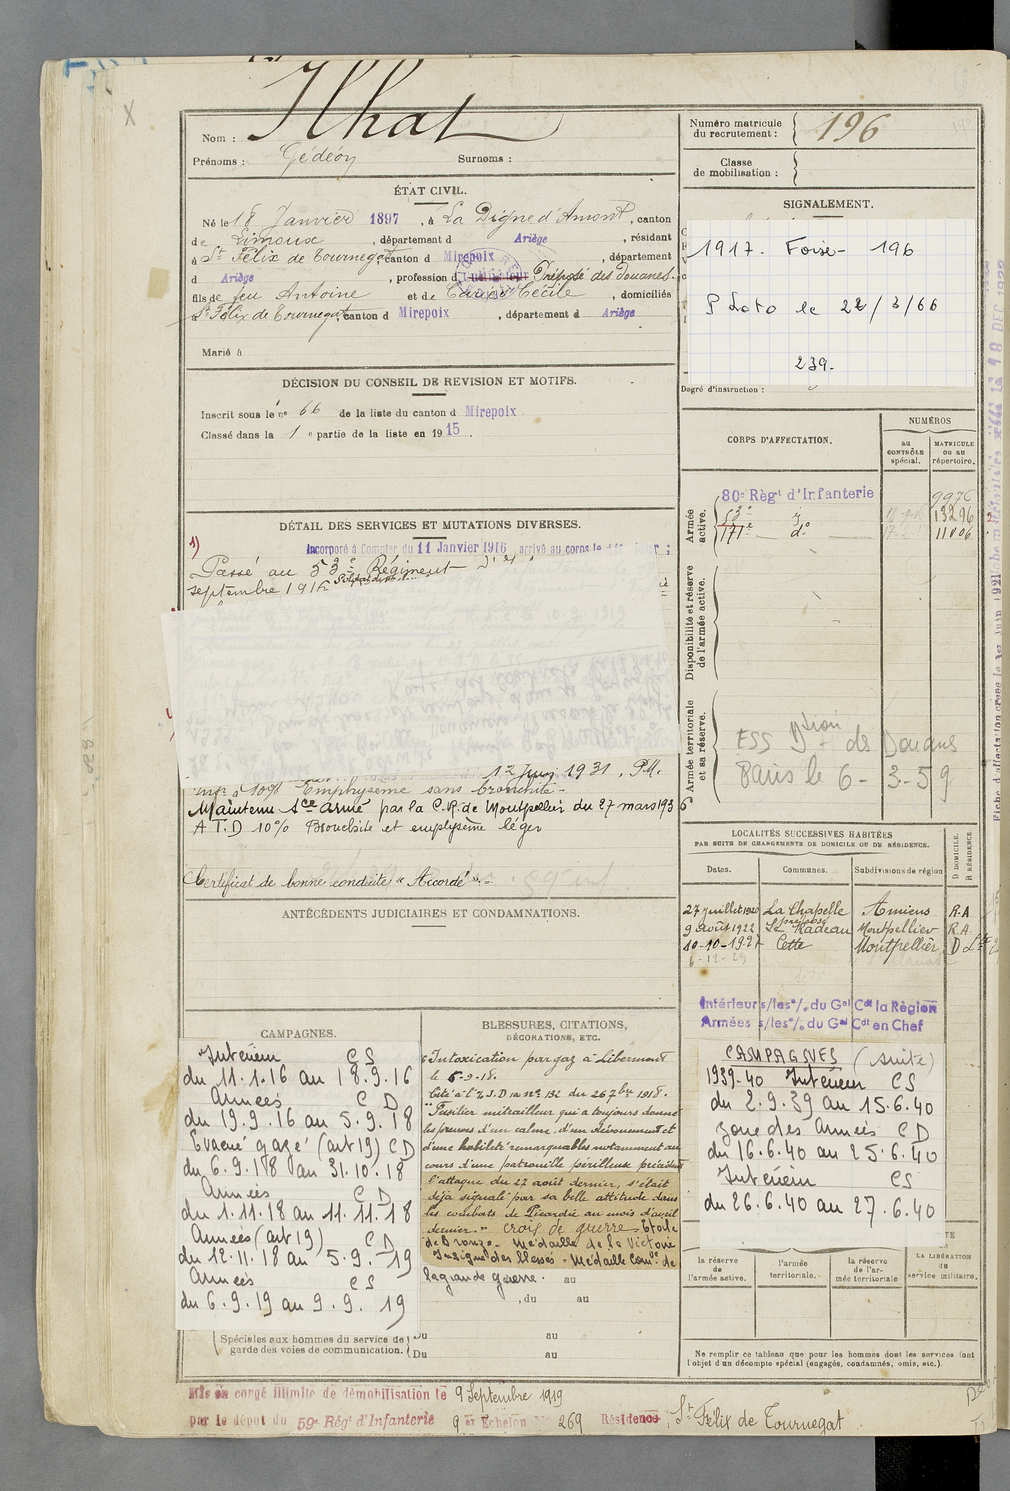 Nom : Ilhat
Prénoms : Gédéon Surnoms :
Numéro matricule du recrutement : 196
Classe de mobilisation :
ÉTAT CIVIL.
Né le 18 Janvier 1897, à La Digne d'Amont, canton
de Limoux, département d Ariège, résidant
à St Félix de Tournegat canton d Mirepoix, département
d Ariège, profession d Préposé des douanes
fils de feu Antoine et de Cécile, domiciliés
St Félix de Tournegat, canton d Mirepoix, département d Ariège
Marié à
SIGNALEMENT.
1917. Foix - 196
Photo le 22/3/66
239.
Degré d'instruction :
DÉCISION DU CONSEIL DE REVISION ET MOTIFS.
Inscrit sous le n° 66 de la liste du canton d Mirepoix
Classé dans la 1 e partie de la liste en 1915.
CORPS D'AFFECTATION.
NUMÉROS
au CONTRÔLE spécial.
MATRICULE ou au répertoire.
Armée active.
80e Régt d'Infanterie 9976
53e 13296
171e - do - 11006
Disponibilité et réserve de l'armée active.
Armée territoriale et sa réserve.
ESS Dtion des Douanes
Paris le 6-3-59
DÉTAIL DES SERVICES ET MUTATIONS DIVERSES.
Incorporé à Compter du 11 Janvier 1916, arrivé au corps le
Passé au 53e Régiment
septembre 1916
12 Juin 1931. P.M.
10% Emphysème sans bronchite -
Maintenu sce armé par la C.R. de Montpellier du 27 mars 1936
A T.D 10% Bronchite et emphysème léger
Certificat de bonne conduite « Accordé ».
ANTÉCÉDENTS JUDICIAIRES ET CONDAMNATIONS.
LOCALITÉS SUCCESSIVES HABITÉES
PAR SUITE DE CHANGEMENTS DE DOMICILE OU DE RÉSIDENCE.
Dates. Communes. Subdivisions de région D DOMICILE. R RÉSIDENCE.
27 juillet 1920 La Chapelle Amiens R.A
9 août 1922 préposé Le Radeau Montpellier R.A.
10-10-1927 Cette Montpellier D
6-12-29
Intérieur s/les °/. du Gal Cdt la Région
Armées s/les °/. du Gal Cdt en Chef
CAMPAGNES.
Intérieur CS
du 11.1.16 au 18.9.16
Armées CD
du 19.9.16 au 5.9.18
Evacué gazé (art 19) CD
du 6.9.18 au 31.10.18
Armées CD
du 1.11.18 au 11.11.18
Armées (art 19) CD
du 12.11.18 au 5.9.19
Armées CS
du 6.9.19 au 9.9.19
Spéciales aux hommes du service de garde des voies de communication.
BLESSURES, CITATIONS,
DÉCORATIONS, ETC.
Intoxication par gaz à Libermont
le 5.9.18.
Cité à l'O/ J.D. n° 132 du 26 7bre 1918.
"Fusilier mitrailleur qui a toujours donné
les preuves d'un calme, d'un dévouement et
d'une habileté remarquables notamment au
cours d'une patrouille périlleuse précédant
l'attaque du 27 août dernier, s'était
déjà signalé par sa belle attitude dans
les combats de Picardie au mois d'avril
dernier." Croix de guerre Etoile
de Bronze - Médaille de la Victoire
Insigne des blessés - Médaille Comve de
la grande guerre. au
, du au
Du au
Du au
CAMPAGNES (suite)
1939-40 Intérieur CS
du 2.9.39 au 15.6.40
zone des Armées CD
du 16.6.40 au 25.6.40
Intérieur CS
du 26.6.40 au 27.6.40
la réserve de l'armée active.
l'armée territoriale.
la réserve de l'armée territoriale
LA LIBÉRATION du service militaire.
Ne remplir ce tableau que pour les hommes dont les services font
l'objet d'un décompte spécial (engagés, condamnés, omis, etc.).
Mis en congé illimité de démobilisation le 9 Septembre 1919
par le dépôt du 59e Régt d'Infanterie 9e Echelon N° 269 Résidence : St Félix de Tournegat